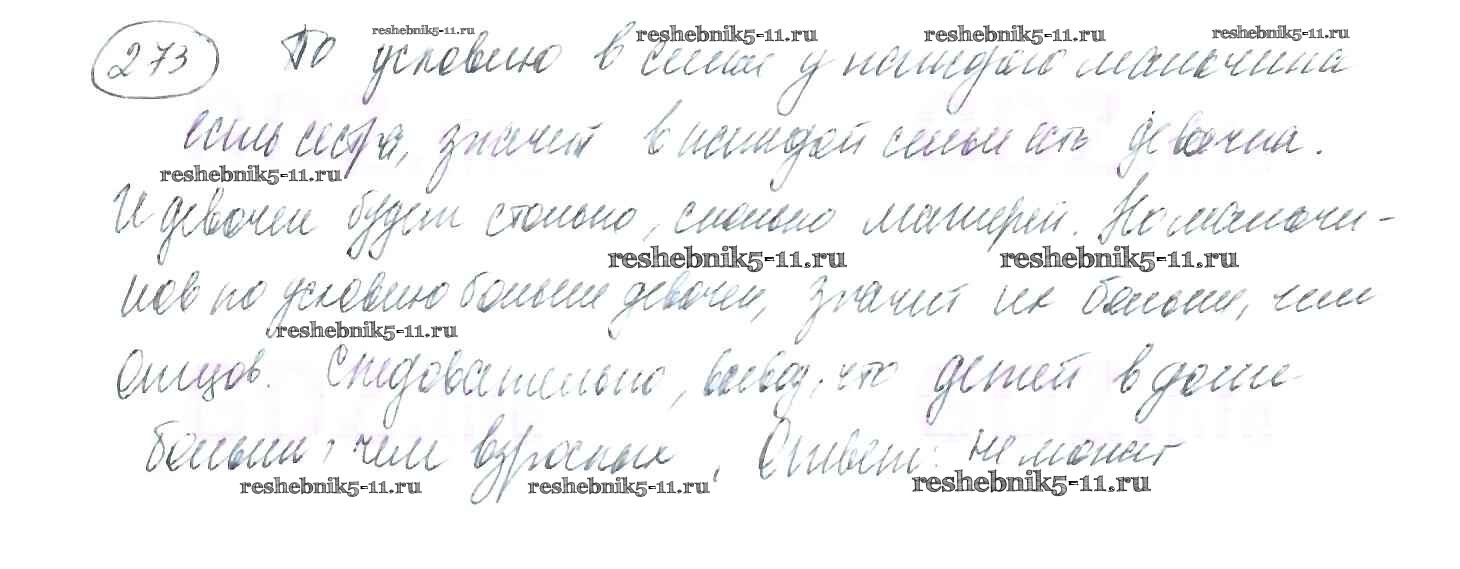 reshebnik5-11.ru reshebnik5-11.ru reshebnik5-11.ru reshebnik5-11.ru
273 По условию в семье у каждого мальчика
есть сестра, значит в каждой семье есть девочка.
reshebnik5-11.ru
И девочек будет столько, сколько матерей. Но мальчи-
reshebnik5-11.ru reshebnik5-11.ru
ков по условию больше девочек, значит их больше, чем
reshebnik5-11.ru
Отцов. Следовательно, вывод, что детей в доме
больше, чем взрослых, Ответ: не может
reshebnik5-11.ru reshebnik5-11.ru reshebnik5-11.ru